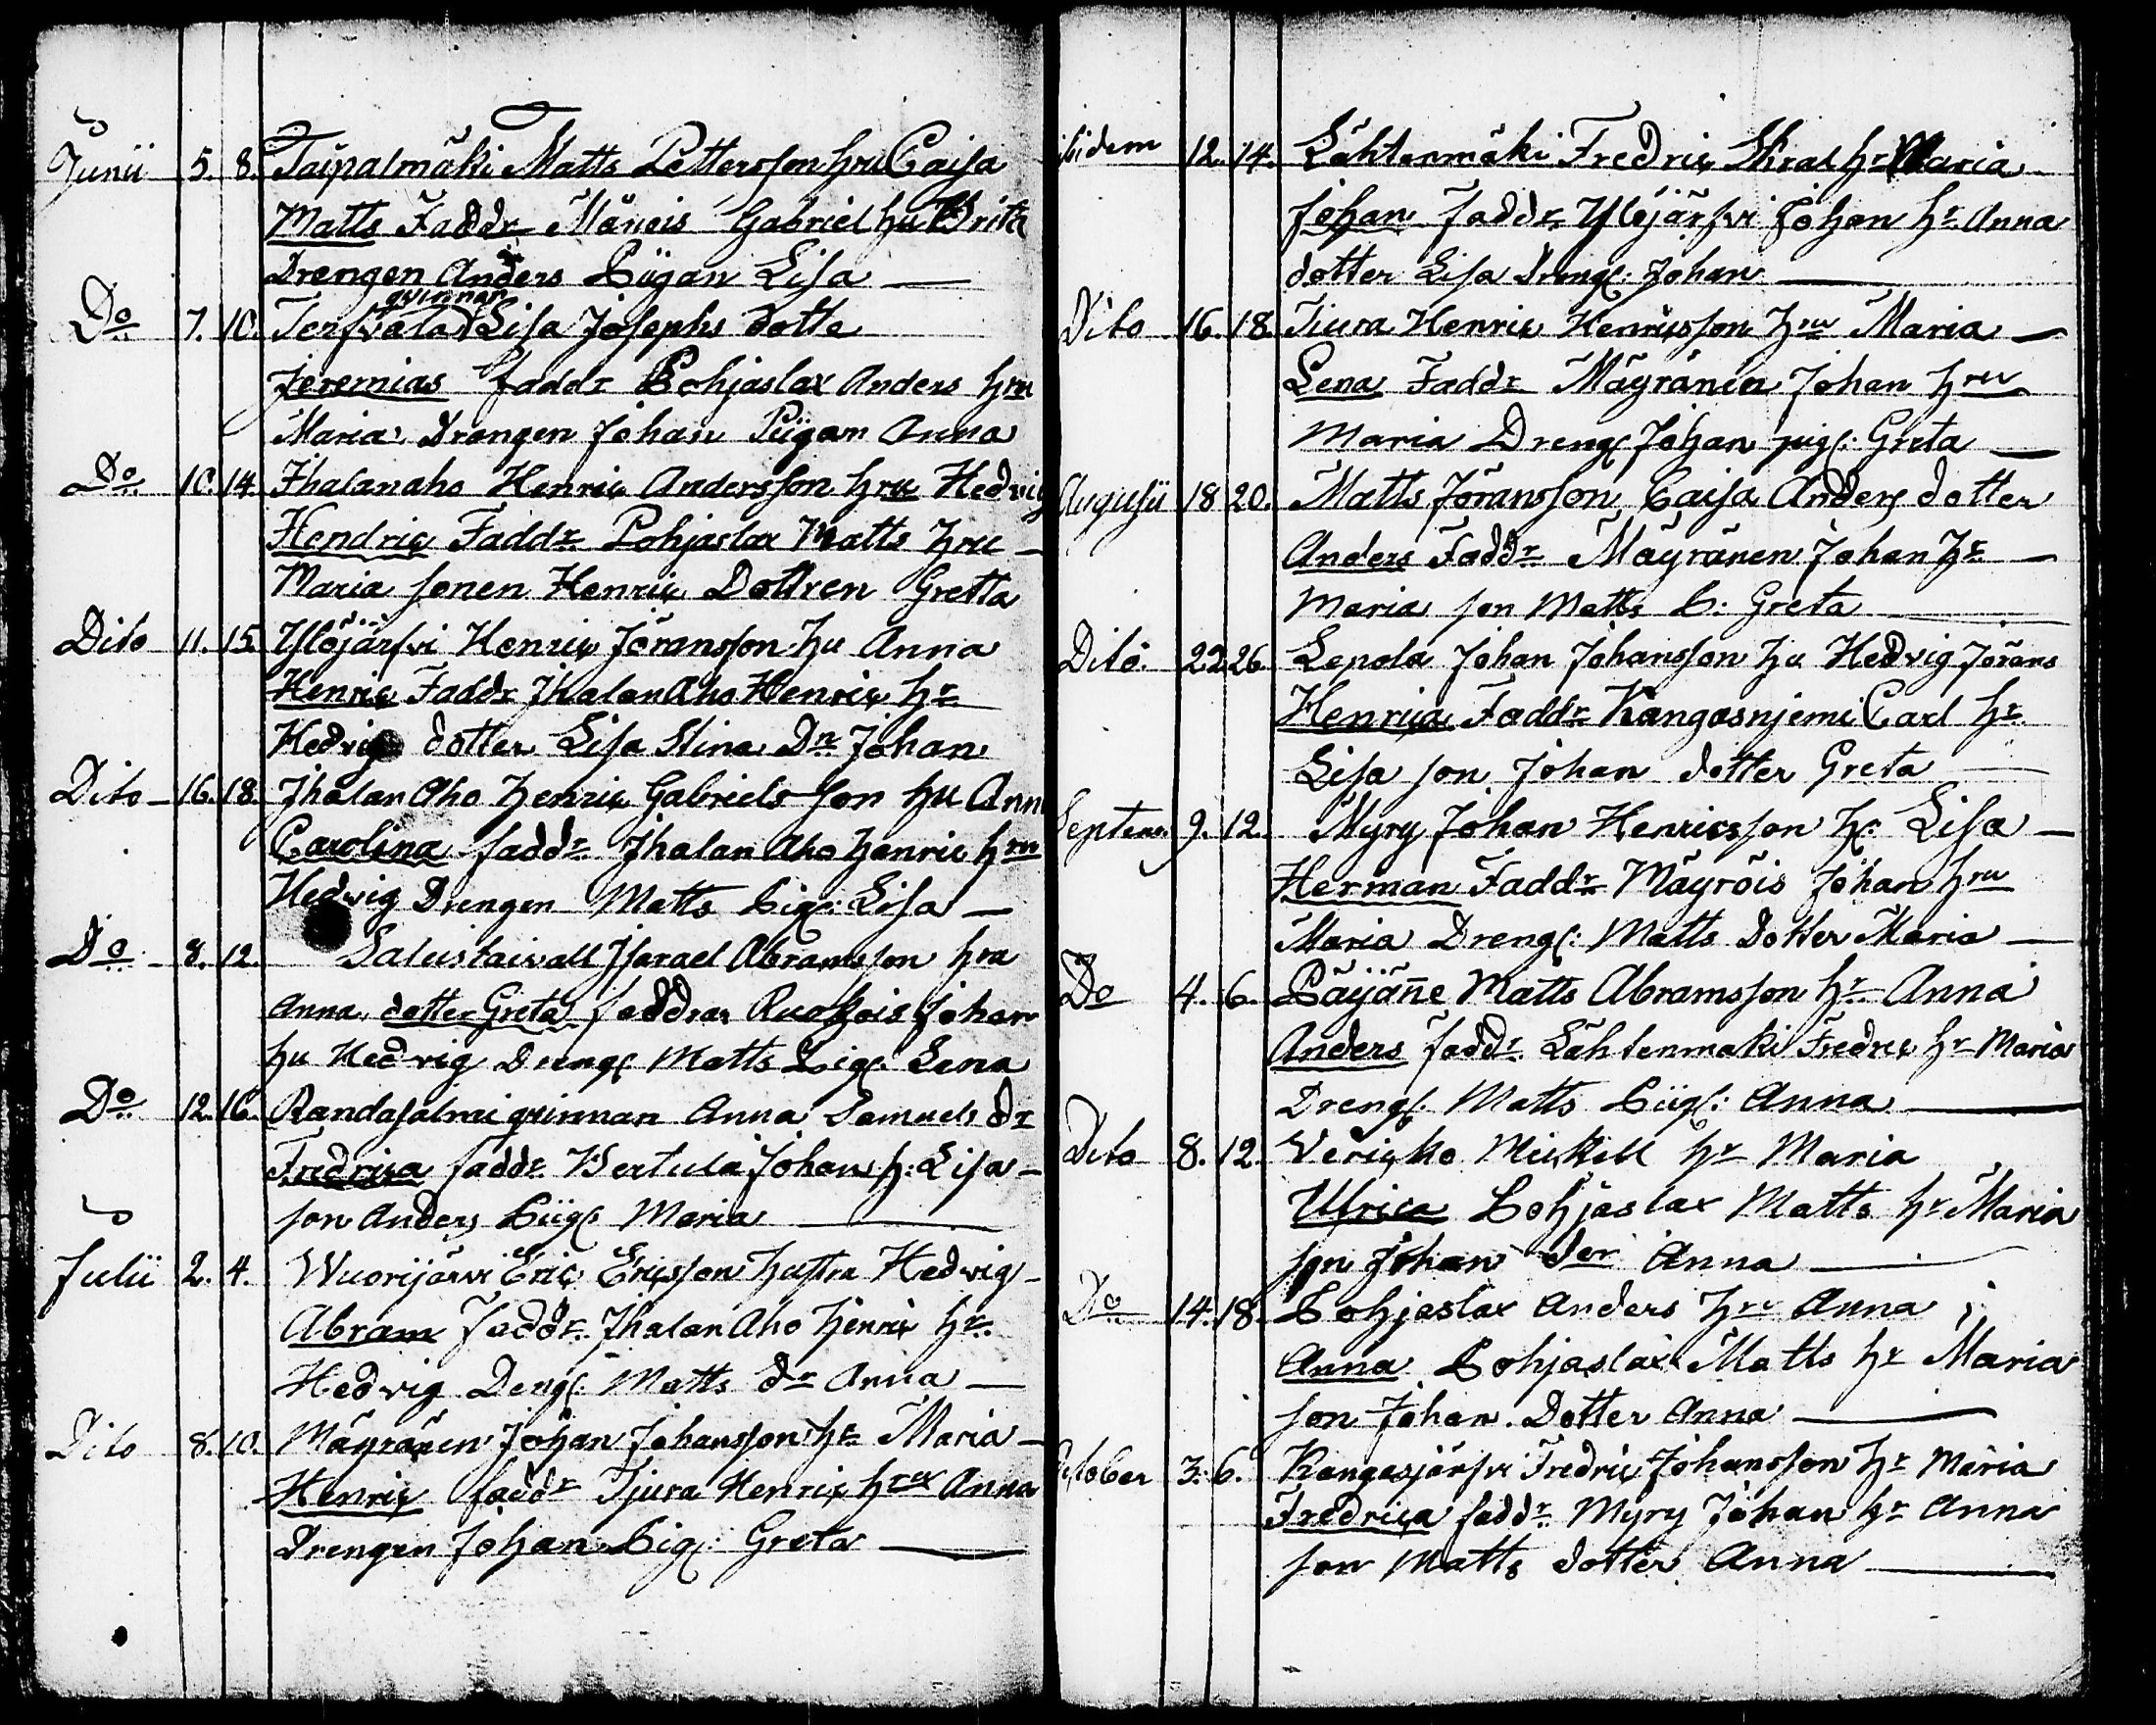 Junii 5. 8. Taipalmäki Matts Pettersson hru Caisa
Matts Faddr Mäneis Gabriel hu Brita
Drengen Anders Piigan Lisa —
Do 7. 10. Terfvala qvinnan Lisa Josephs dotte
Jeremias faddr Pohjaslax Anders hru
Maria Drengen Johan Piigan Anna
Do 10. 14. Ihalanaho Henric Andersson hru Hedvig
Hendric Faddr Pohjaslax Matts hru —
Maria sonen Henric Dottren Gretta
Dito 11. 15. Ylöjärfvi Henric Jöransson hu Anna
Henric Faddr Ihalan Aho Henric hr
Hedvig dotter Lisa Stina Dn Johan
Dito 16. 18. Ihalan Aho Henric Gabriels son hu Ann
Carolina faddr Ihalan Aho Henric hru
Hedwig Drengen Matts Pig: Lisa —
Do 8. 12. Saluistaivall Israel Abramsson hra
Anna, dotter Greta faddrar Ruokois Johan
hu Hedvig Dreng: Matts Pig: Lena
Do 12. 16. Randasalmi qvinnan Anna Samuels dr
Fredrica faddr Wertula Johan h: Lisa —
son Anders Piig: Maria —
Julii 2. 4. Wuorijärvi Eric Ericsson hustru Hedvig —
Abram Faddr Ihalan Aho Henric hr
Hedvig Deng: Matts dr Anna —
Dito 8. 10. Mäyränen Johan Johansson hr Maria —
Henric faddr Tjura Henric hru Anna
Drengen Johan Pig: Greta —
ibidem 12. 14. Lähtenmäki Fredric Skral hr Maria
Johan faddr Ylöjärfvi Johan hr Anna
dotter Lisa Dreng: Johan —
Dito 16. 18. Tiura Henric Henricsson hru Maria —
Lena Faddr Mäyränen Johan hru
Maria Dreng: Johan pig: Greta —
Augusti 18 20. Matts Jöransson, Caisa Anders dotter
Anders Faddr Mäyränen Johan hr —
Maria son Matts P: Greta —
Dito 22. 26. Lepola Johan Johansson hu Hedvig Jörans
Henrica Faddr Kangasnjemi Carl hr
Lisa son Johan dotter Greta —
Septem. 9. 12. Myry Johan Henricsson hr Lisa —
Herman Faddr Mäyröis Johan hru
Maria Dreng: Matts Dotter Maria —
Do 4. 6. Päijäñe Matts Abramsson hr Anna
Anders faddr Lähtenmaki Fredric hr Maria
Dreng: Matts Piig: Anna —
Dito 8. 12. Mickell hr Maria
Ulrica Pohjaslax Matts hr Maria
son Johan der Anna —
Do 14. 18. Pohjaslax Anders hru Anna
Anna Pohjaslax Matts hr Maria
son Johan. Dotter Anna —
October 3. 6. Kangasjärfvi Fredric Johansson hr Maria
Fredrica faddr Myry Johan hr Anna
son Matts dotter Anna —